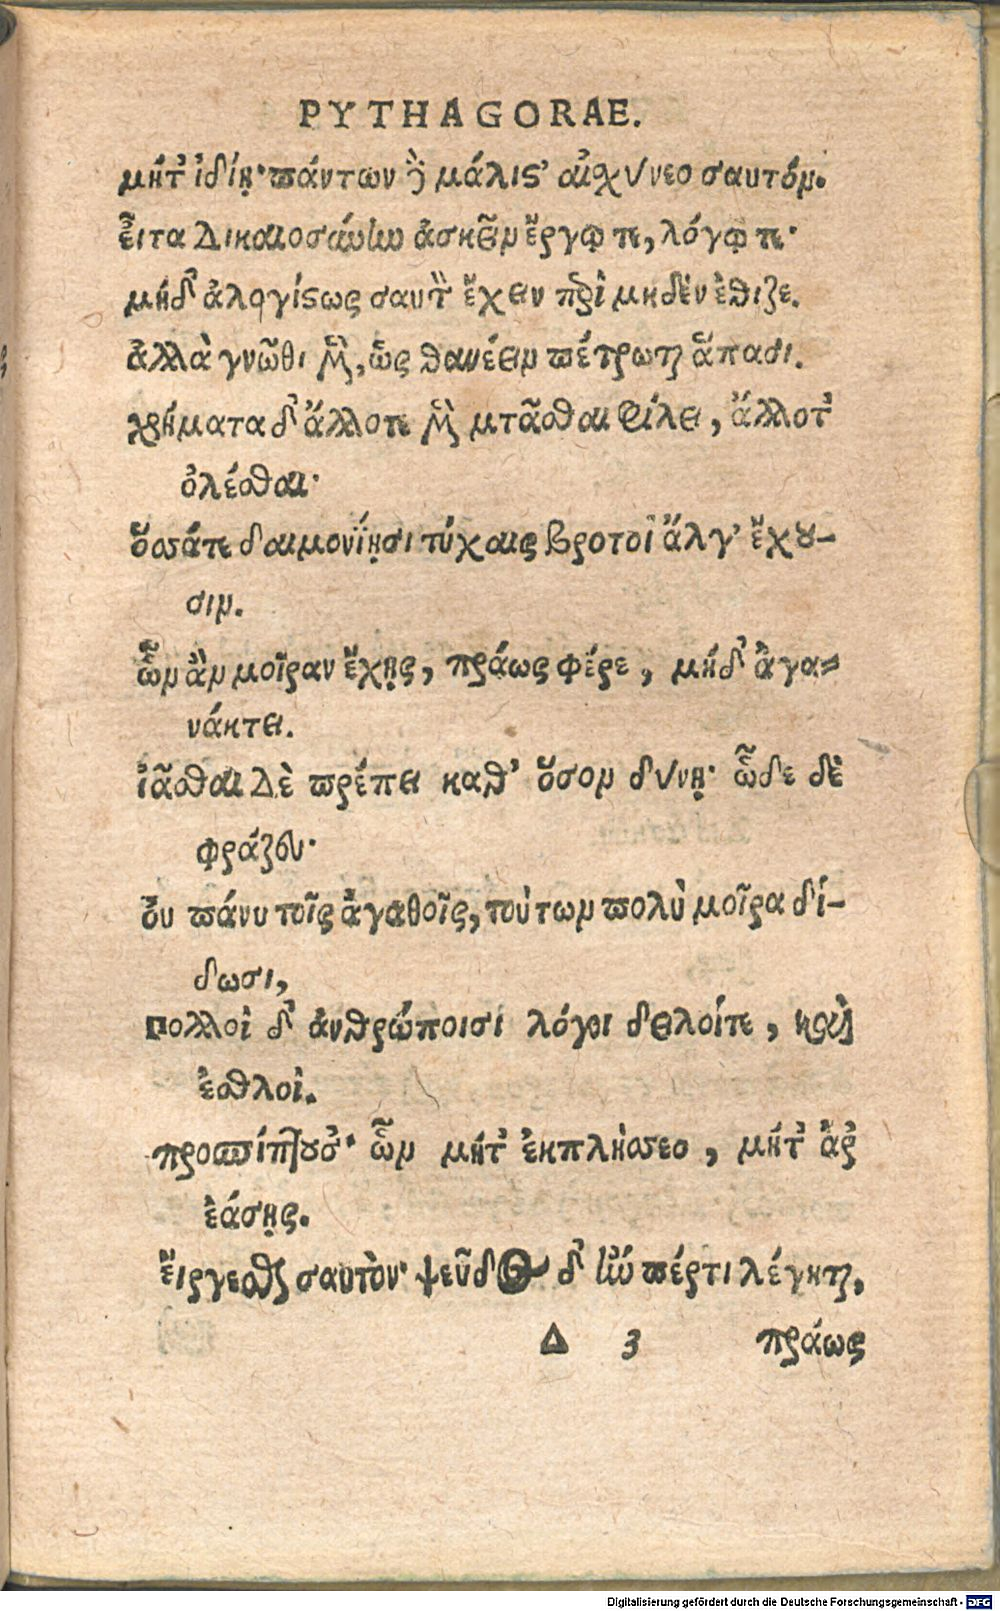 PYTHAGORAE.
μήτ' ἰδίῃ· πάντων δὲ μάλιστ' αἰσχύνεο σαυτόν.
εἶτα Δικαιοσύνην ἀσκεῖν ἔργῳ τε, λόγῳ τε·
μηδ' ἀλογίστως σαυτὸν ἔχειν περὶ μηδὲν ἔθιζε.
ἀλλὰ γνῶθι μὲν, ὡς θανέειν πέπρωται ἅπασι.
χρήματα δ' ἄλλοτε μὲν κτᾶσθαι φίλει, ἄλλοτ'
ὀλέσθαι·
ὅσσάτε δαιμονΐῃσι τύχαις βροτοὶ ἄλγ' ἔχου-
σιν.
ὧν ἂν μοῖραν ἔχῃς, πράως φέρε, μήδ' ἀγα=
νάκτει.
ἰᾶσθαι Δὲ πρέπει καθ' ὅσον δύνῃ· ὧδε δὲ
φράζευ·
ὀυ πάνυ τοῖς ἀγαθοῖς, τούτων πολὺ μοῖρα δί-
δωσι,
πολλοὶ δ' ἀνθρώποισι λόγοι δειλοίτε, καὶ
ἐσθλοὶ.
προσπίπτουσ'· ὧν μήτ' ἐκπλήσσεο, μήτ' ἂρ
ἐάσῃς.
ἔιργεσθαι σαυτὸν· ψεῦδος δ' ἤν πέρτι λέγηται,
Δ 3 πράως
Digitalisierung gefördert durch die Deutsche Forschungsgemeinschaft - DFG